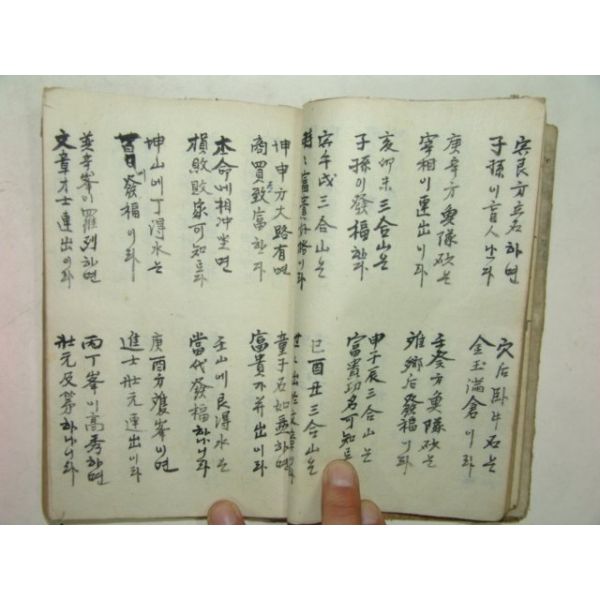 寅艮方立石하면
子孫이盲人난다
庚辛方奧隊砂는
宰相이連出이라
亥卯未三合山은
子孫이發福한다
寅午戌三合山은
富貴이라
穴后臥牛石은
金玉滿倉이라
壬癸方奧隊砂는
雖鄕后發福이라
申子辰三合山은
富貴功名可知로다
巳酉丑三合山은
坤申方大路有면
商買致富한다
本命에相冲坐면
損敗敗家可知로다
坤山에丁得水는
百日發福이라
辛峯이羅列하면
文章才士連出이라
童子石如舞하면
富貴가並出이라
壬山에艮得水는
當代發福하나니라
庚酉方峯이면
進士壯元連出이라
丙丁峯이高秀하면
壯元及第하나니라